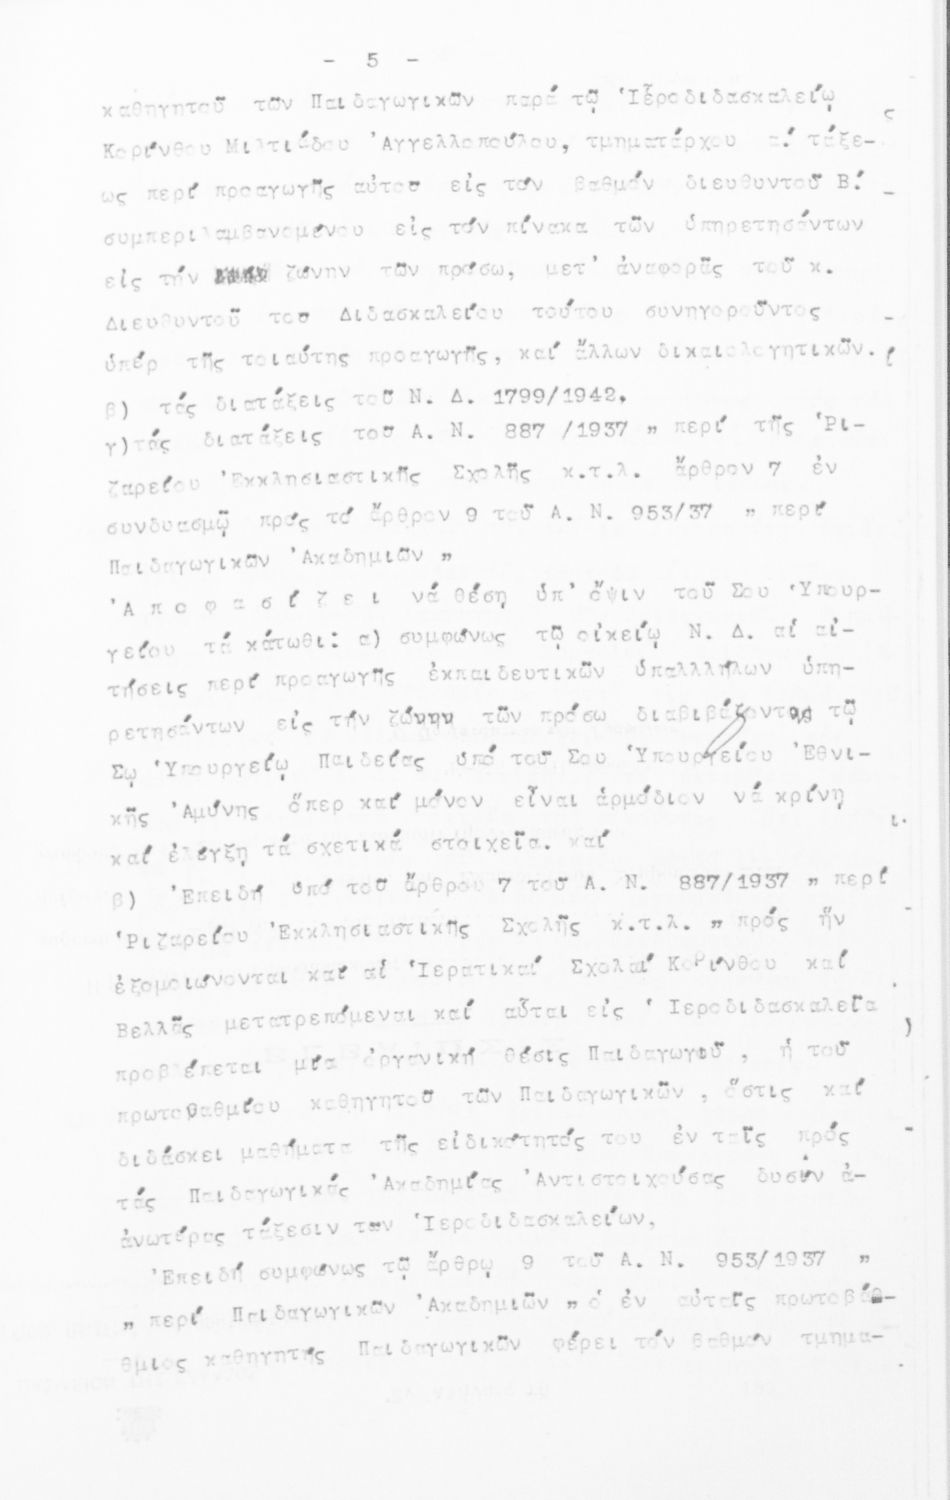 - 5 -
καθηγητοῦ τῶν Παιδαγωγικῶν παρά τῷ Ἱεροδιδασκαλείῳ
Κορίνθου Μιλτιάδου Ἀγγελλοπούλου, τμηματάρχου α΄ τάξε-
ως περί προαγωγῆς αὐτοῦ εἰς τόν βαθμόν διευθυντοῦ Β΄
συμπεριλαμβανομένου εἰς τόν πίνακα τῶν ὑπηρετησάντων
εἰς τήν ζώνην τῶν πρόσω, μετ' ἀναφορᾶς τοῦ κ.
Διευθυντοῦ τοῦ Διδασκαλείου τούτου συνηγοροῦντος
ὑπέρ τῆς τοιαύτης προαγωγῆς, καί ἄλλων δικαιολογητικῶν.
β) τάς διατάξεις τοῦ Ν. Δ. 1799/1942.
γ)τάς διατάξεις τοῦ Α. Ν. 887 /1937 „ περί τῆς Ῥι-
ζαρείου Ἐκκλησιαστικῆς Σχολῆς κ.τ.λ. ἄρθρον 7 ἐν
συνδυασμῷ πρός τό ἄρθρον 9 τοῦ Α. Ν. 953/37 „ περί
Παιδαγωγικῶν Ἀκαδημιῶν „
Ἀ π ο φ α σ ί ζ ε ι νά θέσῃ ὑπ' ὄψιν τοῦ Σου Ὑπουρ-
γείου τά κάτωθι: α) συμφώνως τῷ οἰκείῳ Ν. Δ. αἱ αἰ-
τήσεις περί προαγωγῆς ἐκπαιδευτικῶν ὑπαλλλήλων ὑπη-
ρετησάντων εἰς τήν ζώνην τῶν πρόσω διαβιβάζονται τῷ
Σῳ Ὑπουργείῳ Παιδείας ὑπό τοῦ Σου Ὑπουργείου Ἐθνι-
κῆς Ἀμύνης ὅπερ καί μόνον εἶναι ἁρμόδιον νά κρίνῃ
καί ἐλέγξῃ τά σχετικά στοιχεῖα. καί
β) Ἐπειδή ὑπό τοῦ ἄρθρου 7 τοῦ Α. Ν. 887/1937 „ περί
Ῥιζαρείου Ἐκκλησιαστικῆς Σχολῆς κ.τ.λ. „ πρός ἥν
ἐξομοιώνονται καί αἱ Ἱερατικαί Σχολαί Κορίνθου καί
Βελλᾶς μετατρεπόμεναι καί αὗται εἰς Ἱεροδιδασκαλεῖα
προβλέπεται μία ὀργανική θέσις Παιδαγωγοῦ , ἡ τοῦ
πρωτοβαθμίου καθηγητοῦ τῶν Παιδαγωγικῶν , ὅστις καί
διδάσκει μαθήματα τῆς εἰδικότητός του ἐν ταῖς πρός
τάς Παιδαγωγικάς Ἀκαδημίας Ἀντιστοιχούσας δυσίν ἀ-
ἀνωτέρας τάξεσιν των Ἱεροδιδασκαλείων,
Ἐπειδή συμφώνως τῷ ἄρθρῳ 9 τοῦ Α. Ν. 953/1937 „
„ περί Παιδαγωγικῶν Ἀκαδημιῶν „ ὁ ἐν αὐταῖς πρωτοβάθ-
θμιος καθηγητής Παιδαγωγικῶν φέρει τόν βαθμόν τμημα-